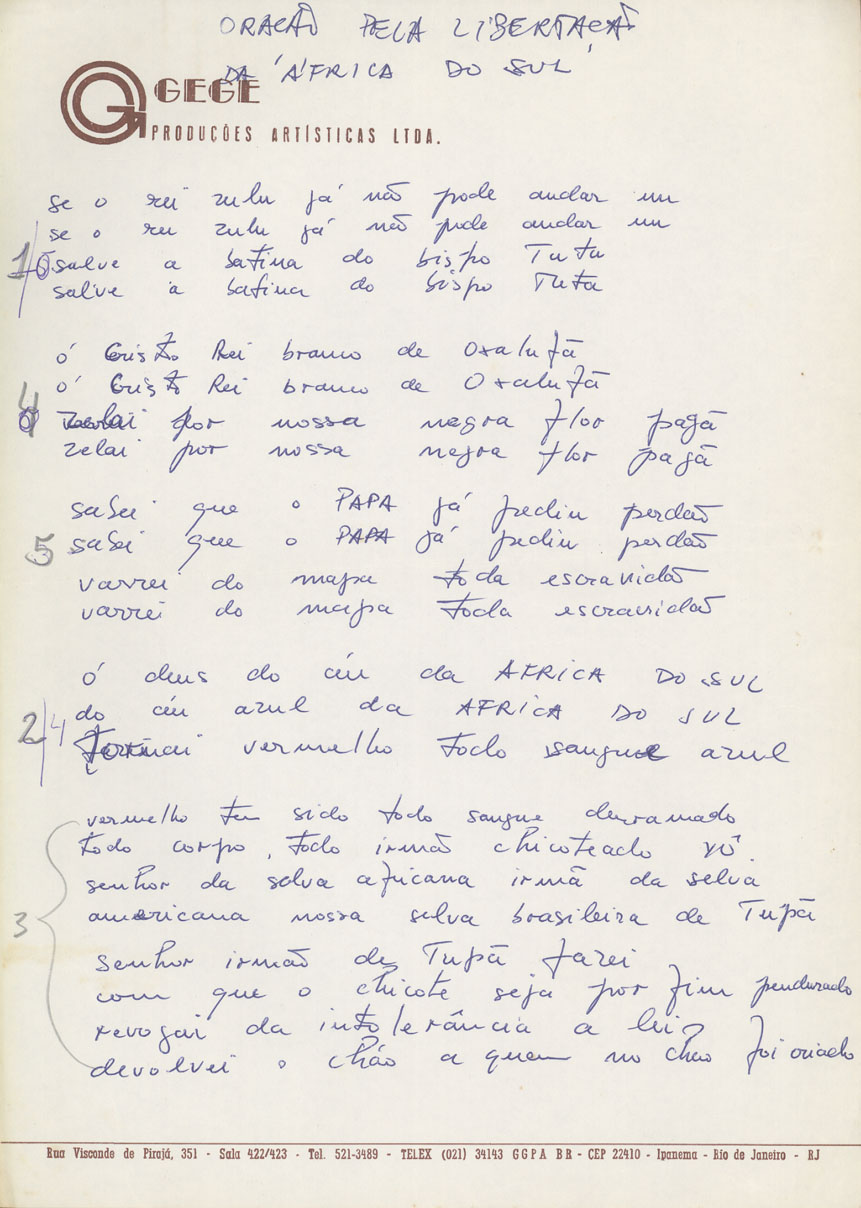 ORAÇÃO PELA LIBERTAÇÃO
DA ÁFRICA DO SUL
GEGE
PRODUÇÕES ARTÍSTICAS LTDA.
se o rei zulu já não pode andar nu
se o rei zulu já não pode andar nu
1 salve a batina do bispo Tutu
salve a batina do bispo Tutu
ó Cristo Rei branco de Oxalufã
ó Cristo Rei branco de Oxalufã
4 zelai por nossa negra flor pagã
zelai por nossa negra flor pagã
sabei que o PAPA já pediu perdão
5 sabei que o PAPA já pediu perdão
varrei do mapa toda escravidão
varrei do mapa toda escravidão
ó deus do céu da AFRICA DO SUL
2 4 do céu azul da AFRICA DO SUL
tornai vermelho todo sangue azul
vermelho tem sido todo sangue derramado
todo corpo, todo irmão chicoteado
senhor da selva africana irmã da selva
3 americana nossa selva brasileira de Tupã
senhor irmão de Tupã fazei
com que o chicote seja por fim pendurado
revogai da intolerância a lei
devolvei o chão a quem no chão foi criado
Rua Visconde de Pirajá, 351 - Sala 422/423 - Tel. 521-3489 - TELEX (021) 34143 GGPA BR - CEP 22410 - Ipanema - Rio de Janeiro - RJ